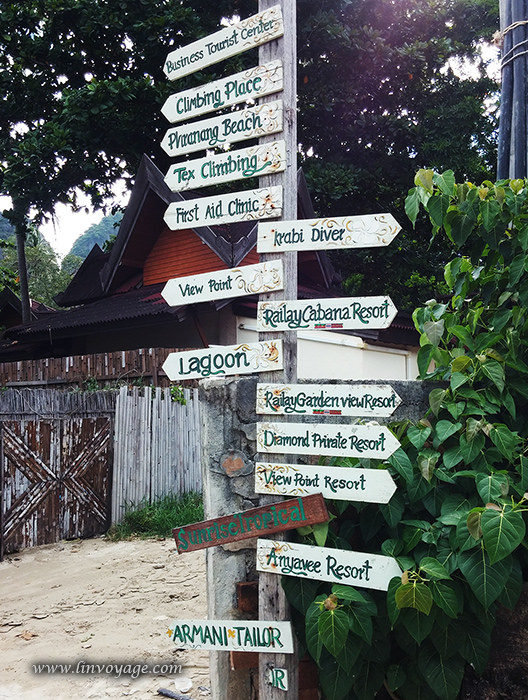 Business Tourist Center
Climbing Place
Phranang Beach
Tex Climbing
First Aid Clinic
Krabi Diver
View Point
Railay Cabana Resort
Lagoon
Railay Garden view Resort
Diamond Private Resort
View Point Resort
Sunrise Tropical
Anyavee Resort
ARMANI TAILOR
JR
www.linvoyage.com